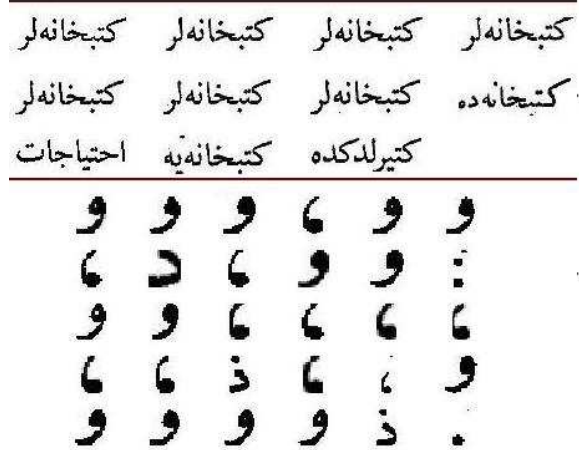 كتبخانه‌لر كتبخانه‌لر كتبخانه‌لر كتبخانه‌لر
كتبخانه‌ده كتبخانه‌لر كتبخانه‌لر كتبخانه‌لر
كتيرلدكده كتبخانه‌يه احتياجات
و و ، و و و
: و و ، د ،
، ، ، ، و و
و ، ، ذ ، ،
. ذ و و و و